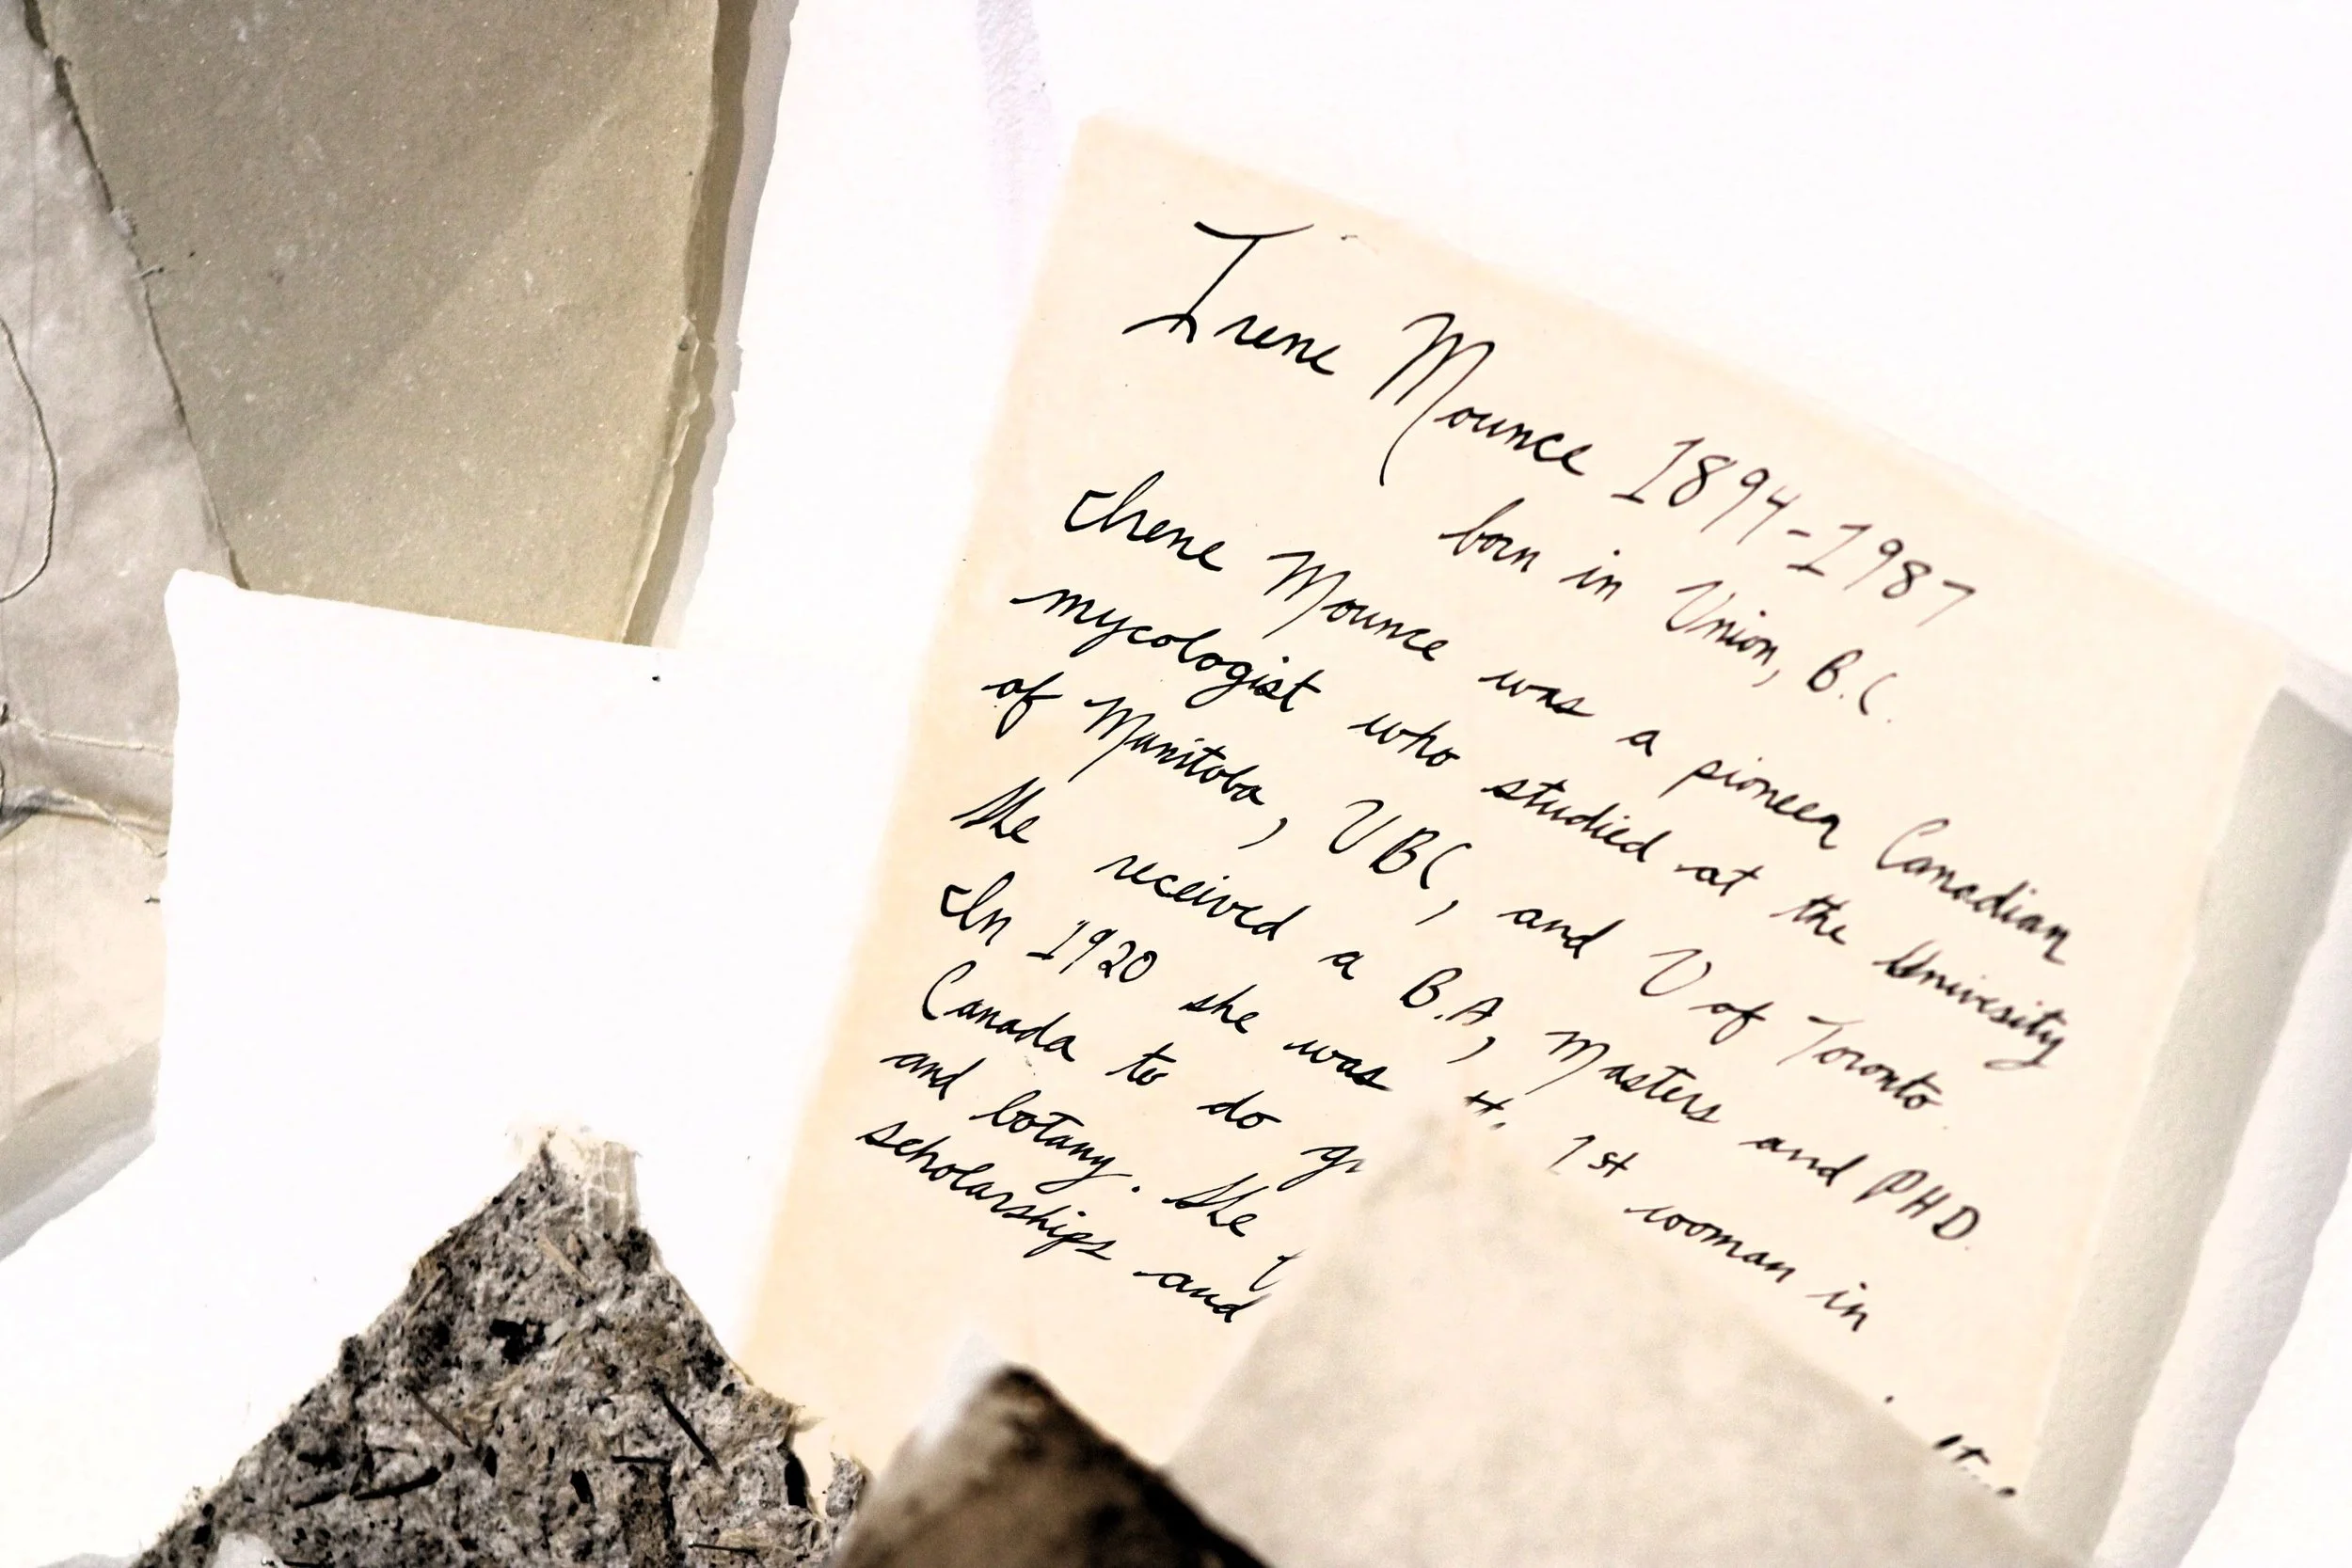 Irene Mounce 1894-1987
born in Union, B.C.
Irene Mounce was a pioneer Canadian
mycologist who studied at the Univesity
of Manitoba, UBC, and U of Toronto.
She received a B.A, Masters and PHD.
In 1920 she was 1st woman in
Canada to do
and botany. She
scholarships and